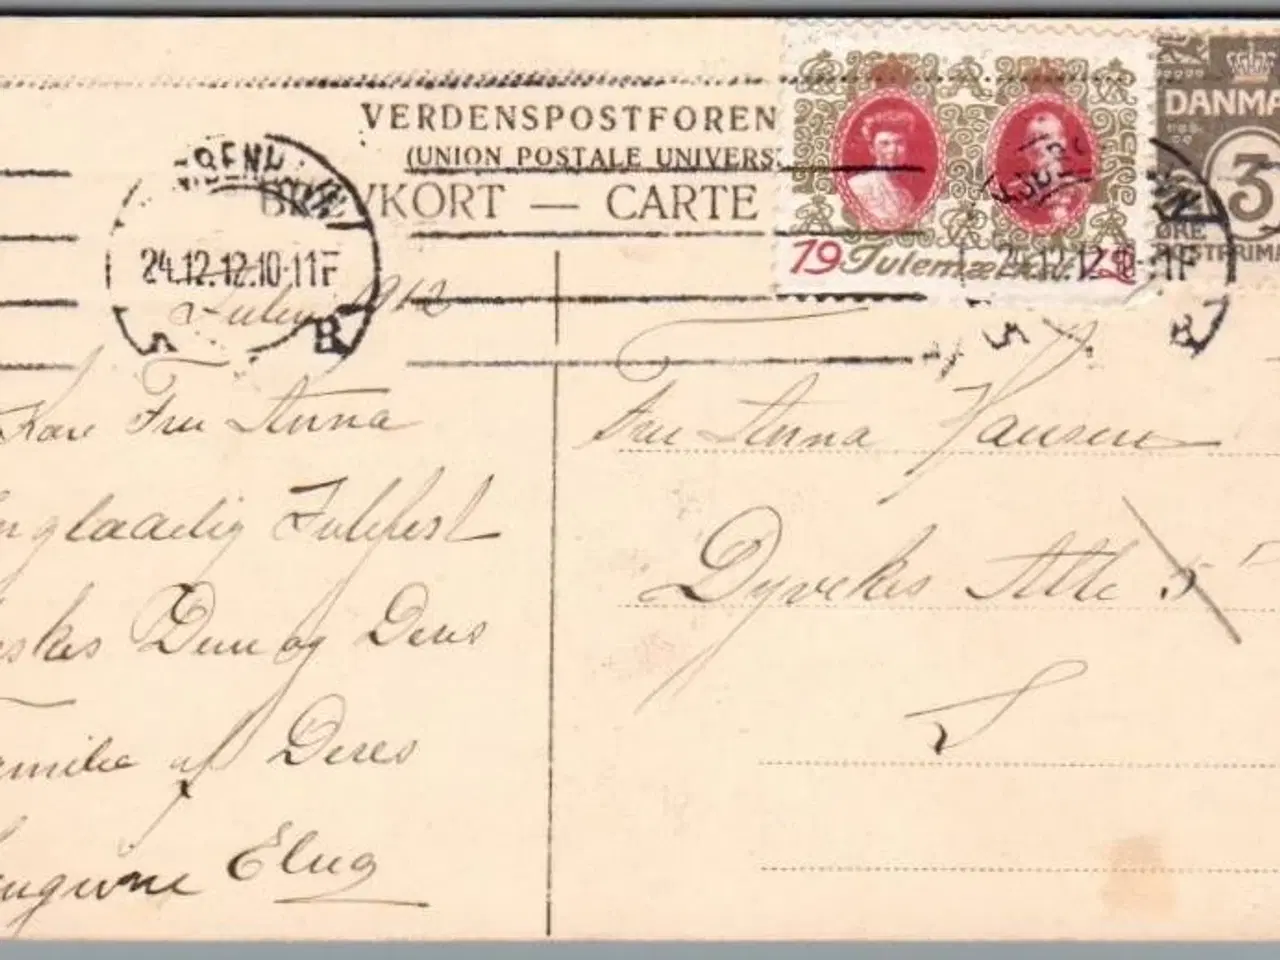 VERDENSPOSTFOREN
(UNION POSTALE UNIVERS
BREVKORT — CARTE
KJØBENHAVN
24.12.12.10-11F
B
19 Julemærket 12
DANMA
3
ØRE
POSTFRIM
Julen 1912
Kære Fru Anna
en glædelig Julefest
skes Dem og Deres
amilie af Deres
hengivne Elna
Fru Anna Hansen
Dyvekes Alle 5
S